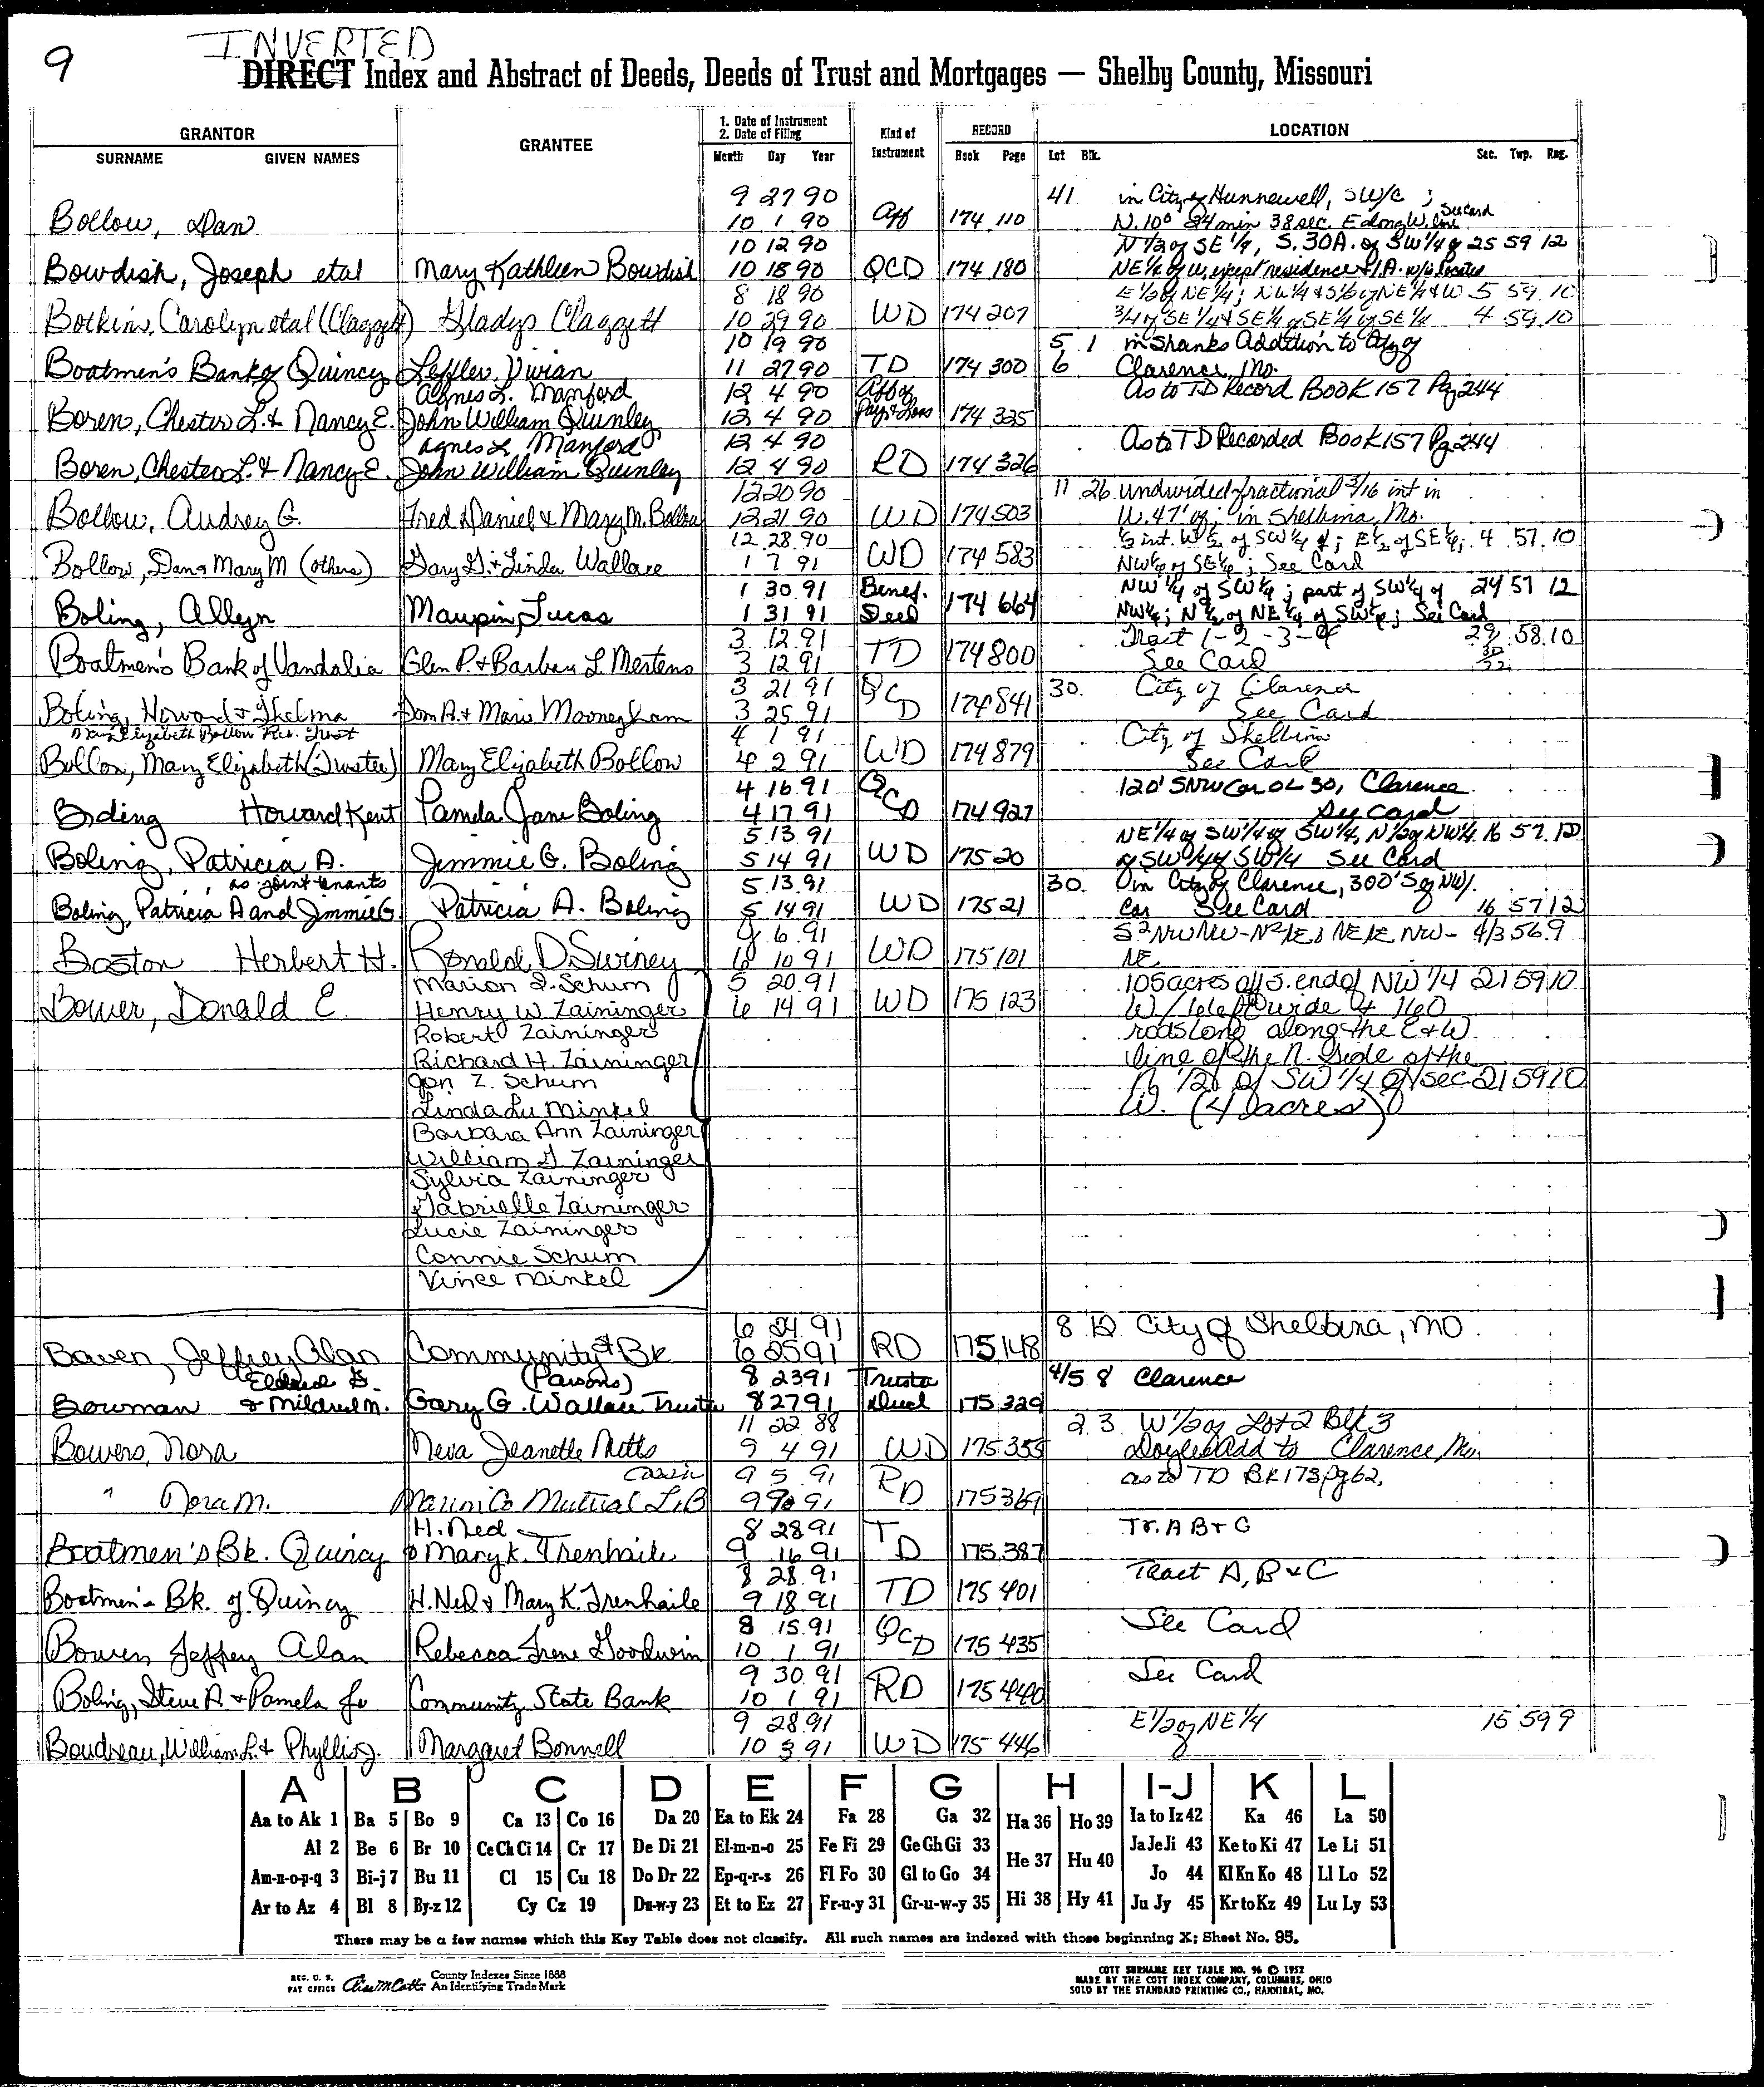 9
INVERTED
DIRECT Index and Abstract of Deeds, Deeds of Trust and Mortgages — Shelby County, Missouri
GRANTOR
SURNAME GIVEN NAMES
GRANTEE
1. Date of Instrument
2. Date of Filing
Month Day Year
Kind of Instrument
RECORD
Book Page
LOCATION
Lot Blk. Sec. Twp. Rng.
9 27 90 41 in City of Hunnewell, SW/C ; See Card
Bollow, Dan 10 1 90 Aff 174 110 N. 10° 24 min 38 sec. E along W. line
10 12 90 N 1/2 of SE 1/4, S. 30A. of SW 1/4 of 25 59 12
Bowdish, Joseph etal Mary Kathleen Bowdish 10 18 90 QCD 174 180 NE 1/4 of W, except residence & 1 A. w/is located
8 18 90 E 1/2 of NE 1/4; NW 1/4 & S 1/2 of NE 1/4 & W 5 59 10
Botkins, Carolyn etal (Claggett) Gladys Claggett 10 29 90 WD 174 207 3/4 of SE 1/4 & SE 1/4 of SE 1/4 of SE 1/4 4 59 10
10 19 90 5 1 in Shanks Addition to City of
Boatmen's Bank of Quincy Leffler Vivian 11 27 90 TD 174 300 6 Clarence, Mo.
Agnes L. Manford 12 4 90 Aff of As to TD Record Book 157 Pg 244
Boren, Chester L. & Nancy E. John William Quinley 12 4 90 174 325
Agnes L. Manford 12 4 90 As to TD Recorded Book 157 Pg 244
Boren, Chester L. & Nancy E. John William Quinley 12 4 90 RD 174 326
12 20 90 11 26 undivided fractional 3/16 int in
Bollow, Audrey G. Fred Daniel & Mary M. Bollow 12 21 90 WD 174 503 W. 47' of; in Shelbina, Mo.
12 28 90 1/2 int. W 1/2 of SW 1/4 of; E 1/2 of SE 1/4; 4 57 10
Bollow, Dan & Mary M (others) Gary G. & Linda Wallace 1 7 91 WD 174 583 NW 1/4 of SE 1/4; See Card
1 30 91 Benef. NW 1/4 of SW 1/4; part of SW 1/4 of 24 57 12
Boling, Allyn Maupin, Lucas 1 31 91 Deed 174 664 NW 1/4; N 1/2 of NE 1/4 of SW 1/4; See Card
3 12 91 Tract 1-2-3-4 29 58 10
Boatmen's Bank of Vandalia Glen P. & Barbara L. Mertens 3 12 91 TD 174 800 See Card
3 21 91 QCD 30. City of Clarence
Boling, Howard & Thelma Don A. & Marie Mooneyham 3 25 91 174 841 See Card
Mary Elizabeth Bollow Rev. Trust 4 1 91 City of Shelbina
Bollow, Mary Elizabeth (Trustee) Mary Elizabeth Bollow 4 2 91 WD 174 879 See Card
4 16 91 QCD 120' S NW Cor OL 30, Clarence
Boling Howard Kent Pamela Jane Boling 4 17 91 174 927 See Card
5 13 91 NE 1/4 of SW 1/4 of SW 1/4, N 1/2 of NW 1/4 16 57 12
Boling, Patricia A. Jimmie G. Boling 5 14 91 WD 175 20 of SW 1/4 of SW 1/4 See Card
as joint tenants 5 13 91 30. in City of Clarence, 300' S of NW/
Boling, Patricia A and Jimmie G. Patricia A. Boling 5 14 91 WD 175 21 Cor See Card 16 57 12
6 6 91 S2 NW NW - N2 NE & NE NE NW - 4/3 56 9
Boston Herbert H. Ronald D. Swiney 6 10 91 WD 175 101 NE
Marion I. Schum 5 20 91 105 acres off S. end of NW 1/4 21 59 10
Bower, Donald E. Henry W. Zaininger 6 14 91 WD 175 123 W/ 16 left wide & 160
Robert Zaininger rods long along the E & W.
Richard H. Zaininger line of the N. side of the
Jon Z. Schum N 1/2 of SW 1/4 of sec 21 59 10
Linda Lu Minkel W. (4 acres)
Barbara Ann Zaininger
William G Zaininger
Sylvia Zaininger
Gabrielle Zaininger
Lucie Zaininger
Connie Schum
Vince Minkel
6 24 91 8 12 City of Shelbina, MO
Bowen, Jeffrey Alan Community St Bk 6 25 91 RD 175 148
Eldred G. (Parsons) 8 23 91 Trustee 4/5 8 Clarence
Bowman & Mildred M. Gary G. Wallace Trustee 8 27 91 Deed 175 329
11 22 88 2 3 W 1/2 of Lot 2 Blk 3
Bowers, Nora Neva Jeanette Mitts 9 4 91 WD 175 355 Doyles Add to Clarence, Mo.
9 5 91 RD as to TD Bk 173 pg 62,
" Nora M. Marion Co Mutual 175 369
H. Ned 8 28 91 TD Tr. A B & C
Boatmen's Bk. Quincy & Mary K. Trenhaile 9 16 91 175 387
8 28 91 Tract A, B & C
Boatmen's Bk. of Quincy H. Ned & Mary K. Trenhaile 9 18 91 TD 175 401
8 15 91 See Card
Bowen Jeffrey Alan Rebecca Irene Goodwin 10 1 91 QCD 175 435
9 30 91 See Card
Boling, Steve R. & Pamela Jo Community State Bank 10 1 91 RD 175 440
9 28 91 E 1/2 of NE 1/4 15 59 9
Boudreau, William L. & Phyllis J. Margaret Bonnell 10 3 91 WD 175 446
A B C D E F G H I-J K L
Aa to Ak 1 Ba 5 Bo 9 Ca 13 Co 16 Da 20 Ea to Ek 24 Fa 28 Ga 32 Ha 36 Ho 39 Ia to Iz 42 Ka 46 La 50
Al 2 Be 6 Br 10 Ce Ch Ci 14 Cr 17 De Di 21 El-m-n-o 25 Fe Fi 29 Ge Gh Gi 33 He 37 Hu 40 Ja Je Ji 43 Ke to Ki 47 Le Li 51
Am-n-o-p-q 3 Bi-j 7 Bu 11 Cl 15 Cu 18 Do Dr 22 Ep-q-r-s 26 Fl Fo 30 Gl to Go 34 Jo 44 Kl Kn Ko 48 Ll Lo 52
Ar to Az 4 Bl 8 By-z 12 Cy Cz 19 Du-w-y 23 Et to Ez 27 Fr-u-y 31 Gr-u-w-y 35 Hi 38 Hy 41 Ju Jy 45 Kr to Kz 49 Lu Ly 53
There may be a few names which this Key Table does not classify. All such names are indexed with those beginning X; Sheet No. 95.
REG. U. S. PAT OFFICE County Indexes Since 1888 An Identifying Trade Mark
COTT SURNAME KEY TABLE NO. 96 © 1952
MADE BY THE COTT INDEX COMPANY, COLUMBUS, OHIO
SOLD BY THE STANDARD PRINTING CO., HANNIBAL, MO.